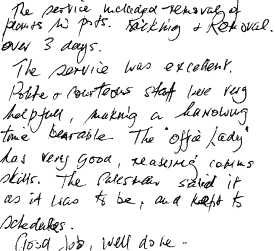 The service included removal of
plants in pots. Packing & Removal.
over 3 days.
The service was excellent.
Polite & courteous staff were very
helpful, making a harrowing
time bearable. The "office lady"
has very good, reassuring comms
skills. The Salesman said it
as it was to be, and kept to
schedules.
Good job, well done.